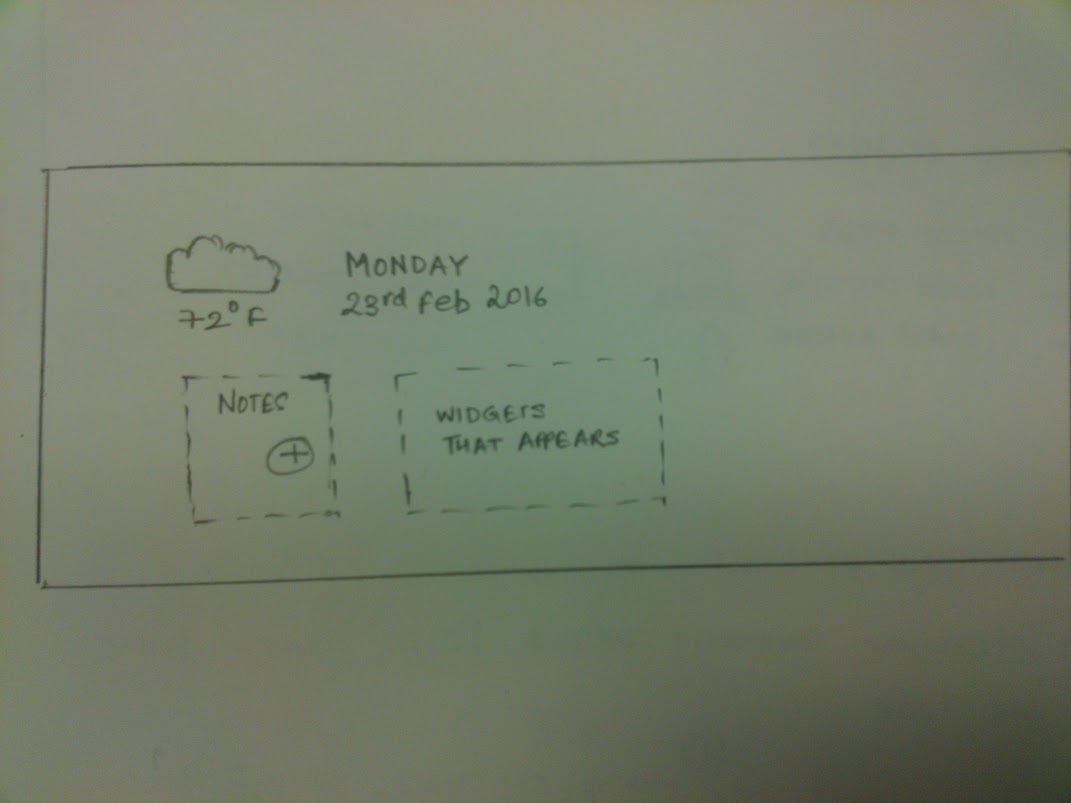 72°F
MONDAY
23rd Feb 2016
NOTES
+
WIDGETS
THAT APPEARS